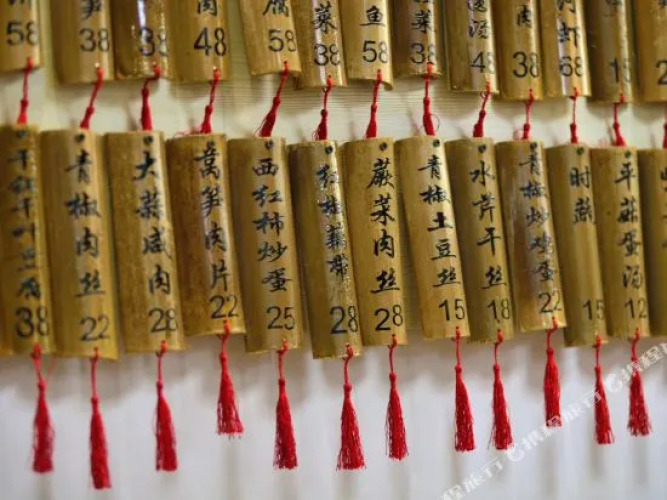 58
38
38
肉 48
腐 58
菜 38
鱼 58
菜 38
汤 48
肉 38
虾 68
15
青椒肉丝 22
大蒜咸肉 28
莴笋肉片 22
西红柿炒蛋 25
红椒藕带 28
蕨菜肉丝 28
青椒土豆丝 15
水芹干丝 18
青椒炒鸡蛋 22
时蔬 15
平菇蛋汤 12
38
携程旅行